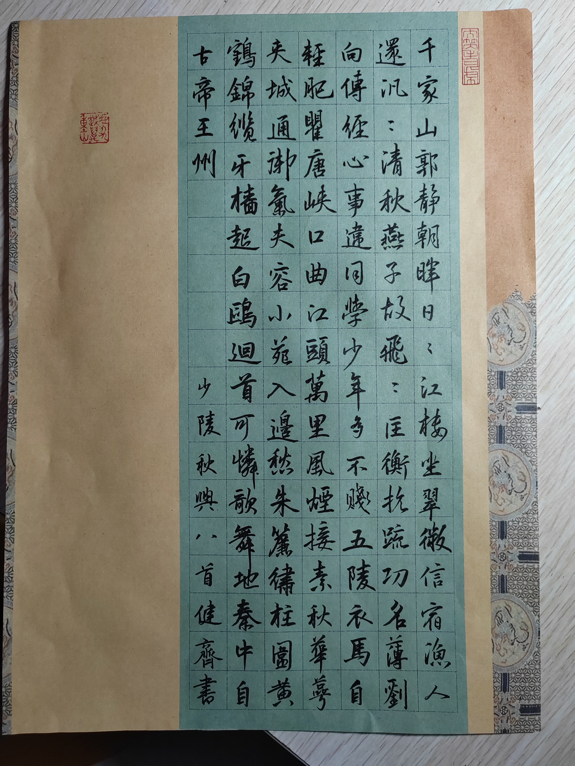 千家山郭靜朝暉日〻江楼坐翠微信宿漁人
還汎〻清秋燕子故飛〻匡衡抗疏功名薄劉
向傳經心事違同學少年多不賤五陵衣馬自
輕肥瞿唐峽口曲江頭萬里風煙接素秋華萼
夾城通御氣芙容小苑入邊愁朱簾繡柱圍黄
鶴錦纜牙檣起白鷗迴首可憐歌舞地秦中自
古帝王州
少陵秋興八首健齊書